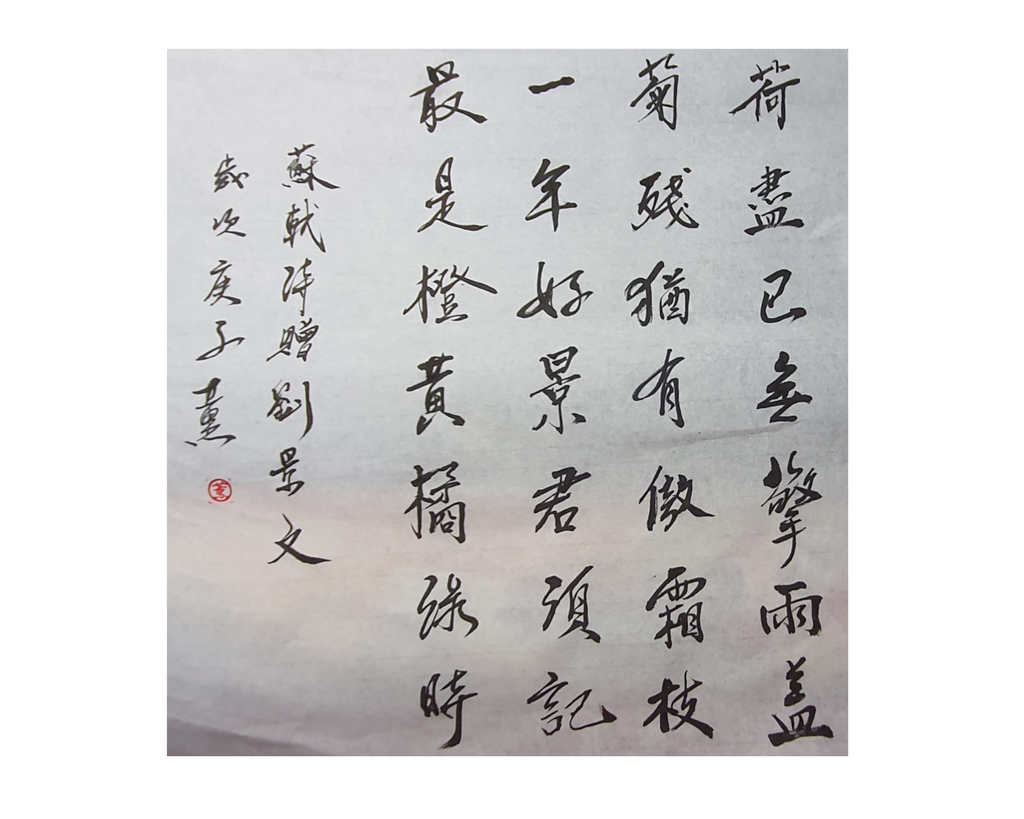 荷盡已無擎雨蓋
菊殘猶有傲霜枝
一年好景君須記
最是橙黃橘綠時
蘇軾詩贈劉景文
歲次庚子薰